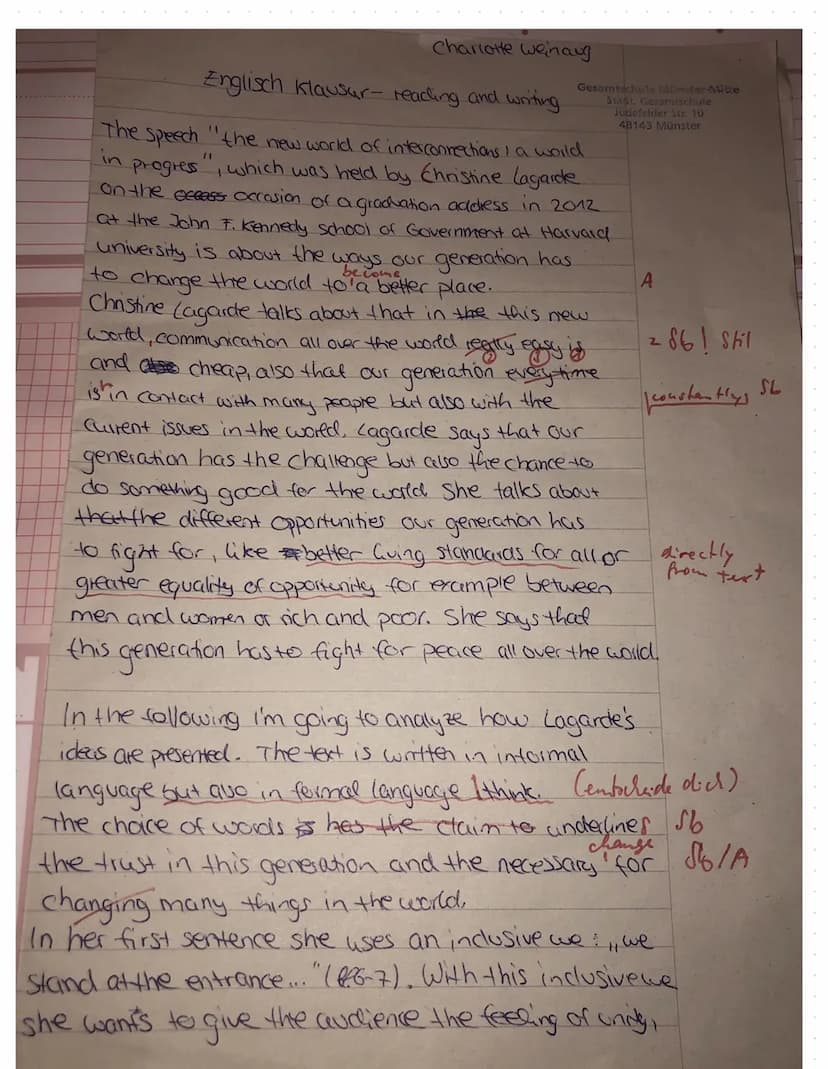 Charlotte Weinaug
Englisch Klausur - reading and writing
Gesamtschule Münster Mitte
Städt. Gesamtschule
Jüdefelder Str. 10
48143 Münster
The speech "the new world of interconnections, a world
in progres", which was held by Christine Lagarde
on the occasion of a graduation address in 2012
at the John F. Kennedy school of Government at Harvard
university is about the ways our generation has
become
to change the world to a better place.
A
Christine Lagarde talks about that in the this new
world, communication all over the world really easy is
2 Sb! Stil
and cheap, also that our generation everytime
constantly Sb
is in contact with many people but also with the
current issues in the world. Lagarde says that our
generation has the challenge but also the chance to
do something good for the world. She talks about
that the different opportunities our generation has
to fight for, like better living standards for all or
directly
from text
greater equality of opportunity for example between
men and women or rich and poor. She says that
this generation has to fight for peace all over the world.
In the following I'm going to analyze how Lagarde's
ideas are presented. The text is written in informal
language but also in formal language I think. (entscheide dich)
The choice of words is has the claim to underlines Sb
change
the trust in this generation and the necessary for Sb/A
changing many things in the world.
In her first sentence she uses an inclusive we: „we
stand at the entrance..." (6-7). With this inclusive we
she wants to give the audience the feeling of unity,